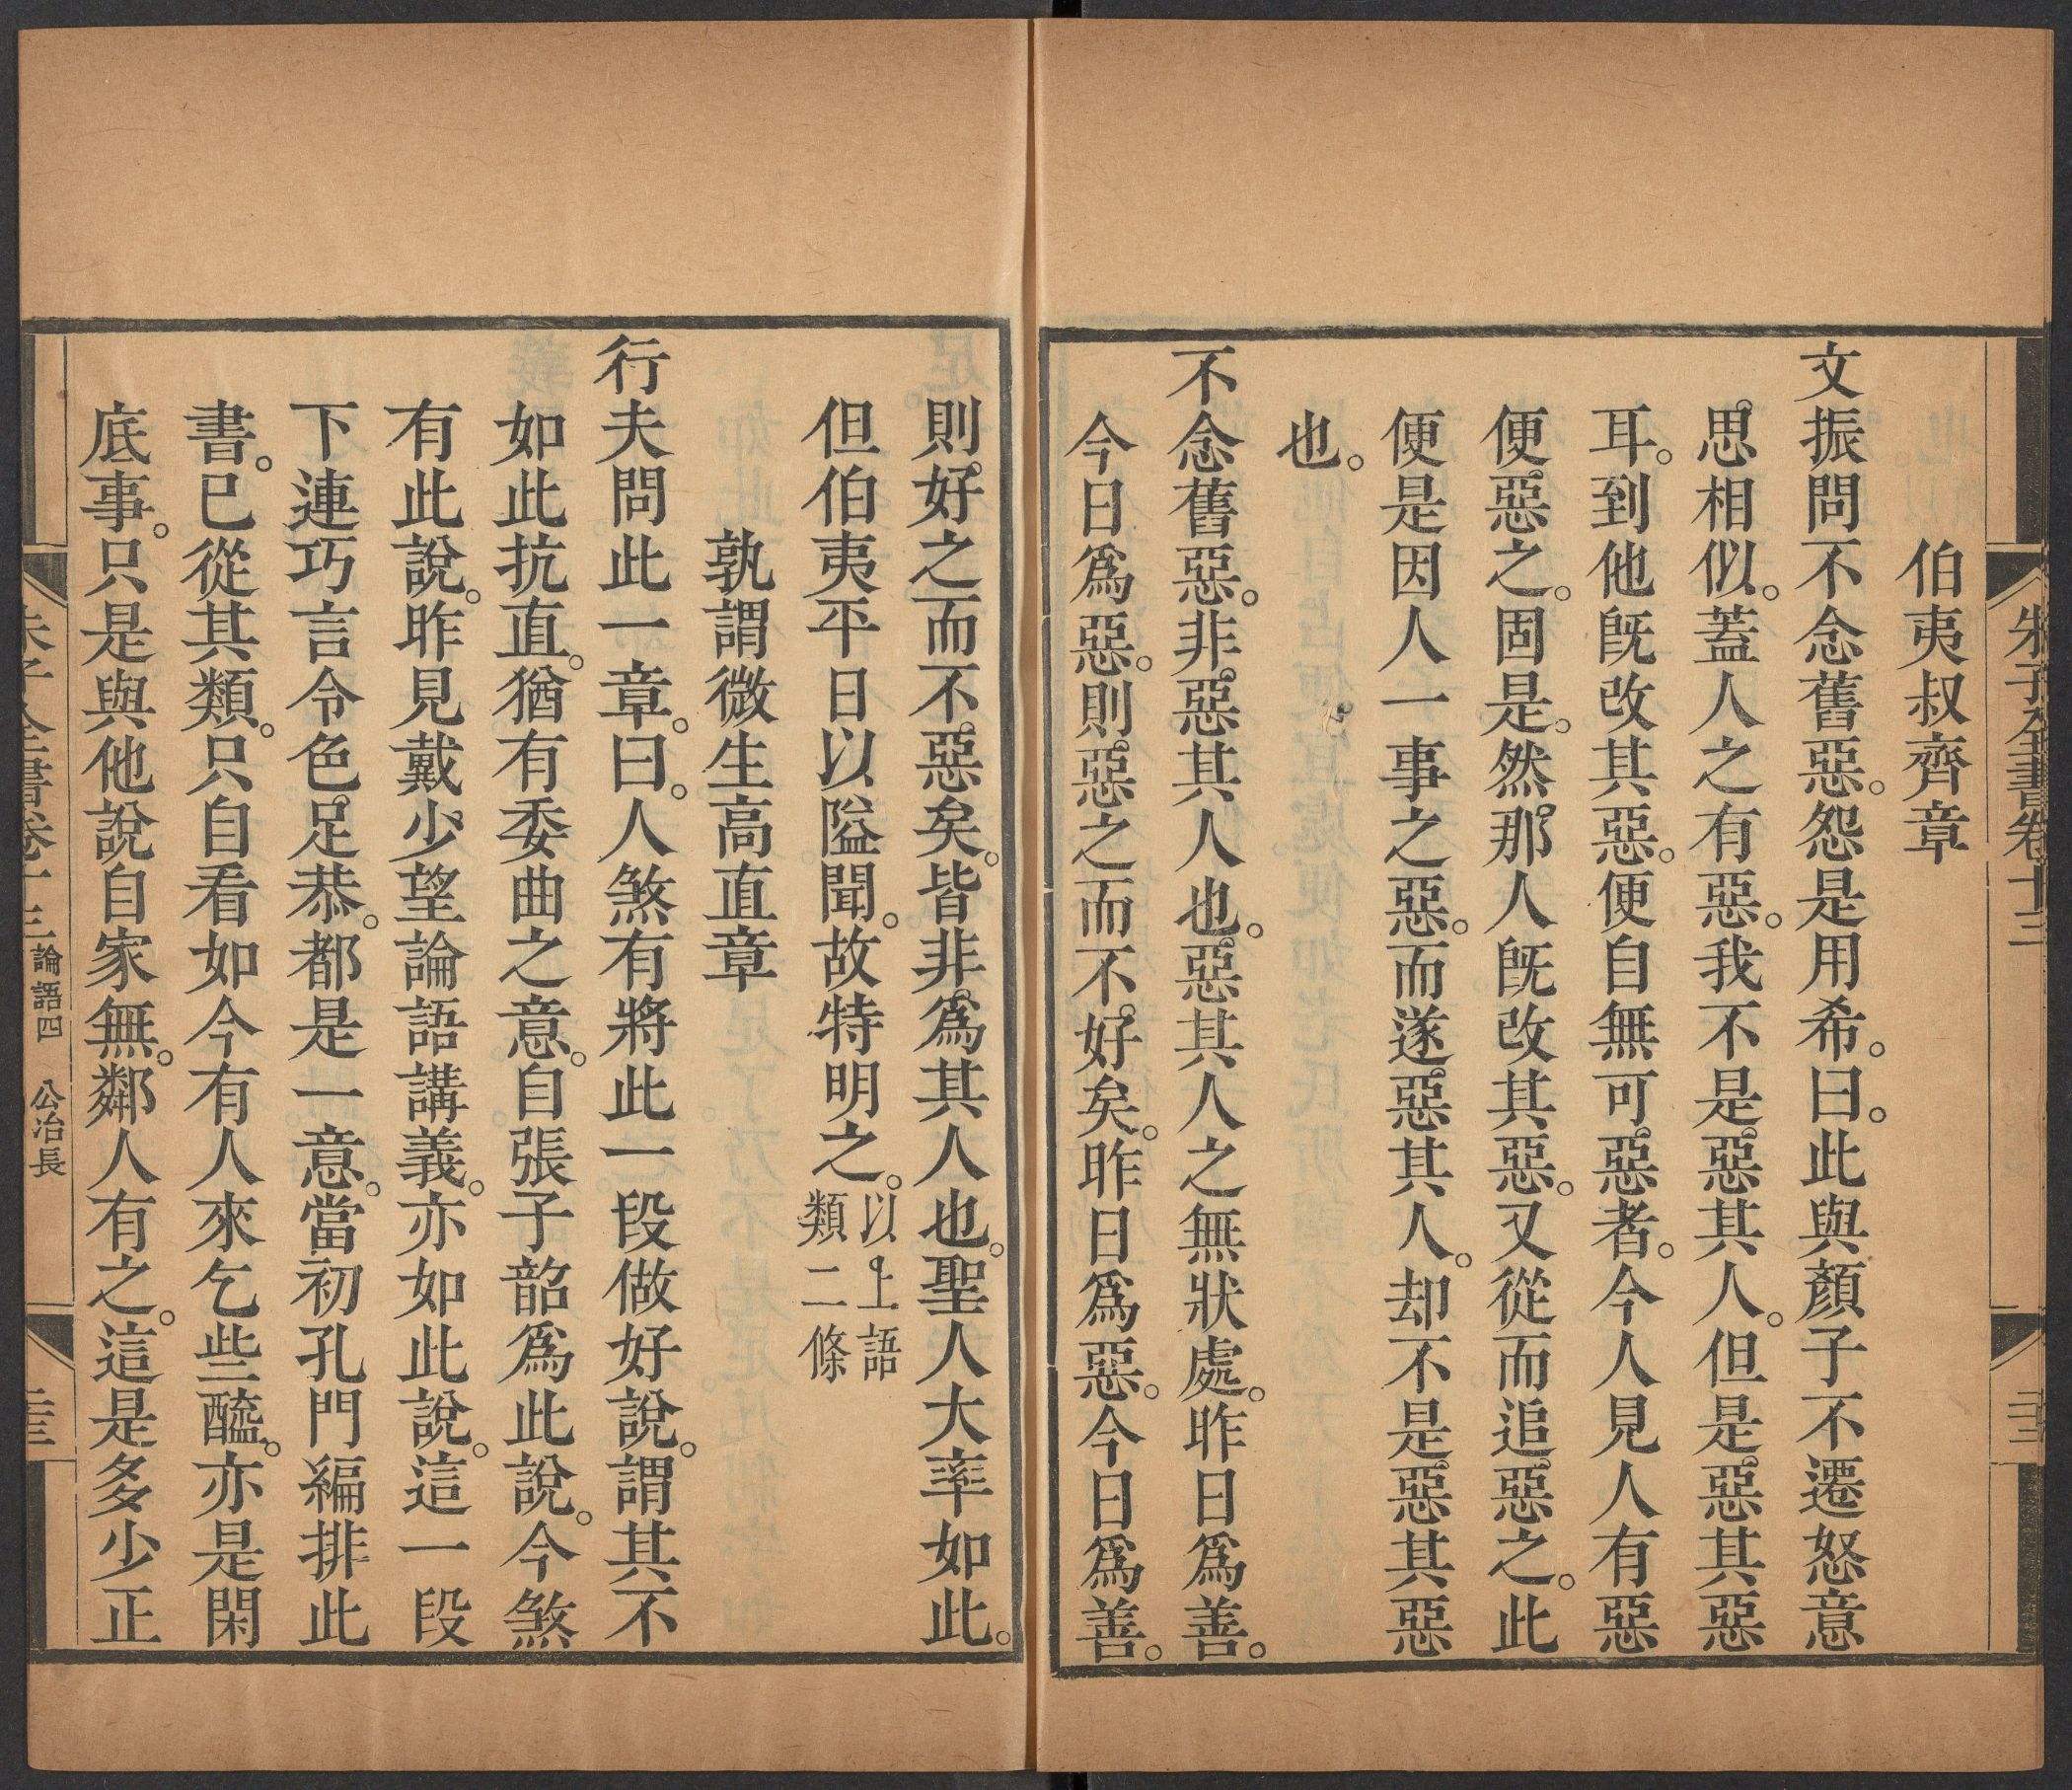 朱子全書卷十三
伯夷叔齊章
文振問不念舊惡。怨是用希。曰。此與顏子不遷怒意
思相似。蓋人之有惡。我不是惡其人。但是惡其惡
耳。到他旣改其惡。便自無可惡者。今人見人有惡
便惡之。固是。然那人旣改其惡。又從而追惡之。此
便是因人一事之惡。而遂惡其人。却不是惡其惡
也。
不念舊惡。非惡其人也。惡其人之無狀處。昨日爲善。
今日爲惡。則惡之而不好矣。昨日爲惡。今日爲善。
則好之而不惡矣。皆非爲其人也。聖人大率如此。
但伯夷平日以隘聞。故特明之。以上語
類二條
孰謂微生高直章
行夫問此一章。曰。人煞有將此一段做好說。謂其不
如此抗直。猶有委曲之意。自張子韶爲此說。今煞
有此說。昨見戴少望論語講義。亦如此說。這一段
下連巧言令色足恭。都是一意。當初孔門編排此
書。已從其類。只自看如今有人來乞些醯。亦是閑
底事。只是與他說自家無。鄰人有之。這是多少正
朱子全書卷十三 論語四 公冶長